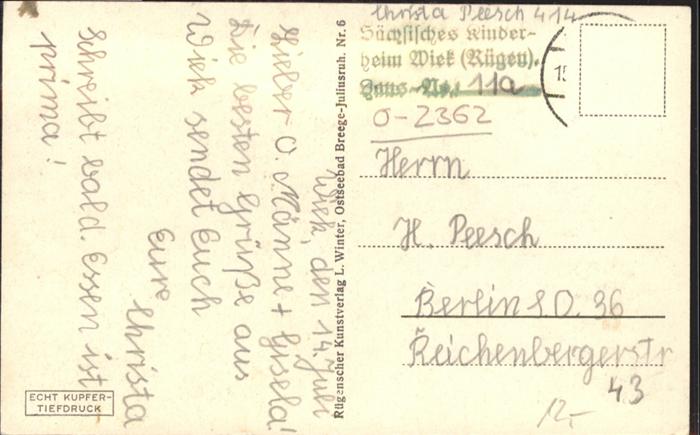 Wiek, den 14. Juli
Lieber O. Männe + Gisela!
Die besten Grüße aus
Wiek sendet Euch
Eure
Christa
Schreibt bald. Essen ist
prima!
ECHT KUPFER-
TIEFDRUCK
Rügenscher Kunstverlag L. Winter, Ostseebad Breege-Juliusruh. Nr. 6
Christa Peesch 414
Sächsisches Kinder-
heim Wiek (Rügen).
Haus-Nr. 11a
O-2362
Herrn
H. Peesch
Berlin S.O. 36
Reichenbergerstr
43
12,-